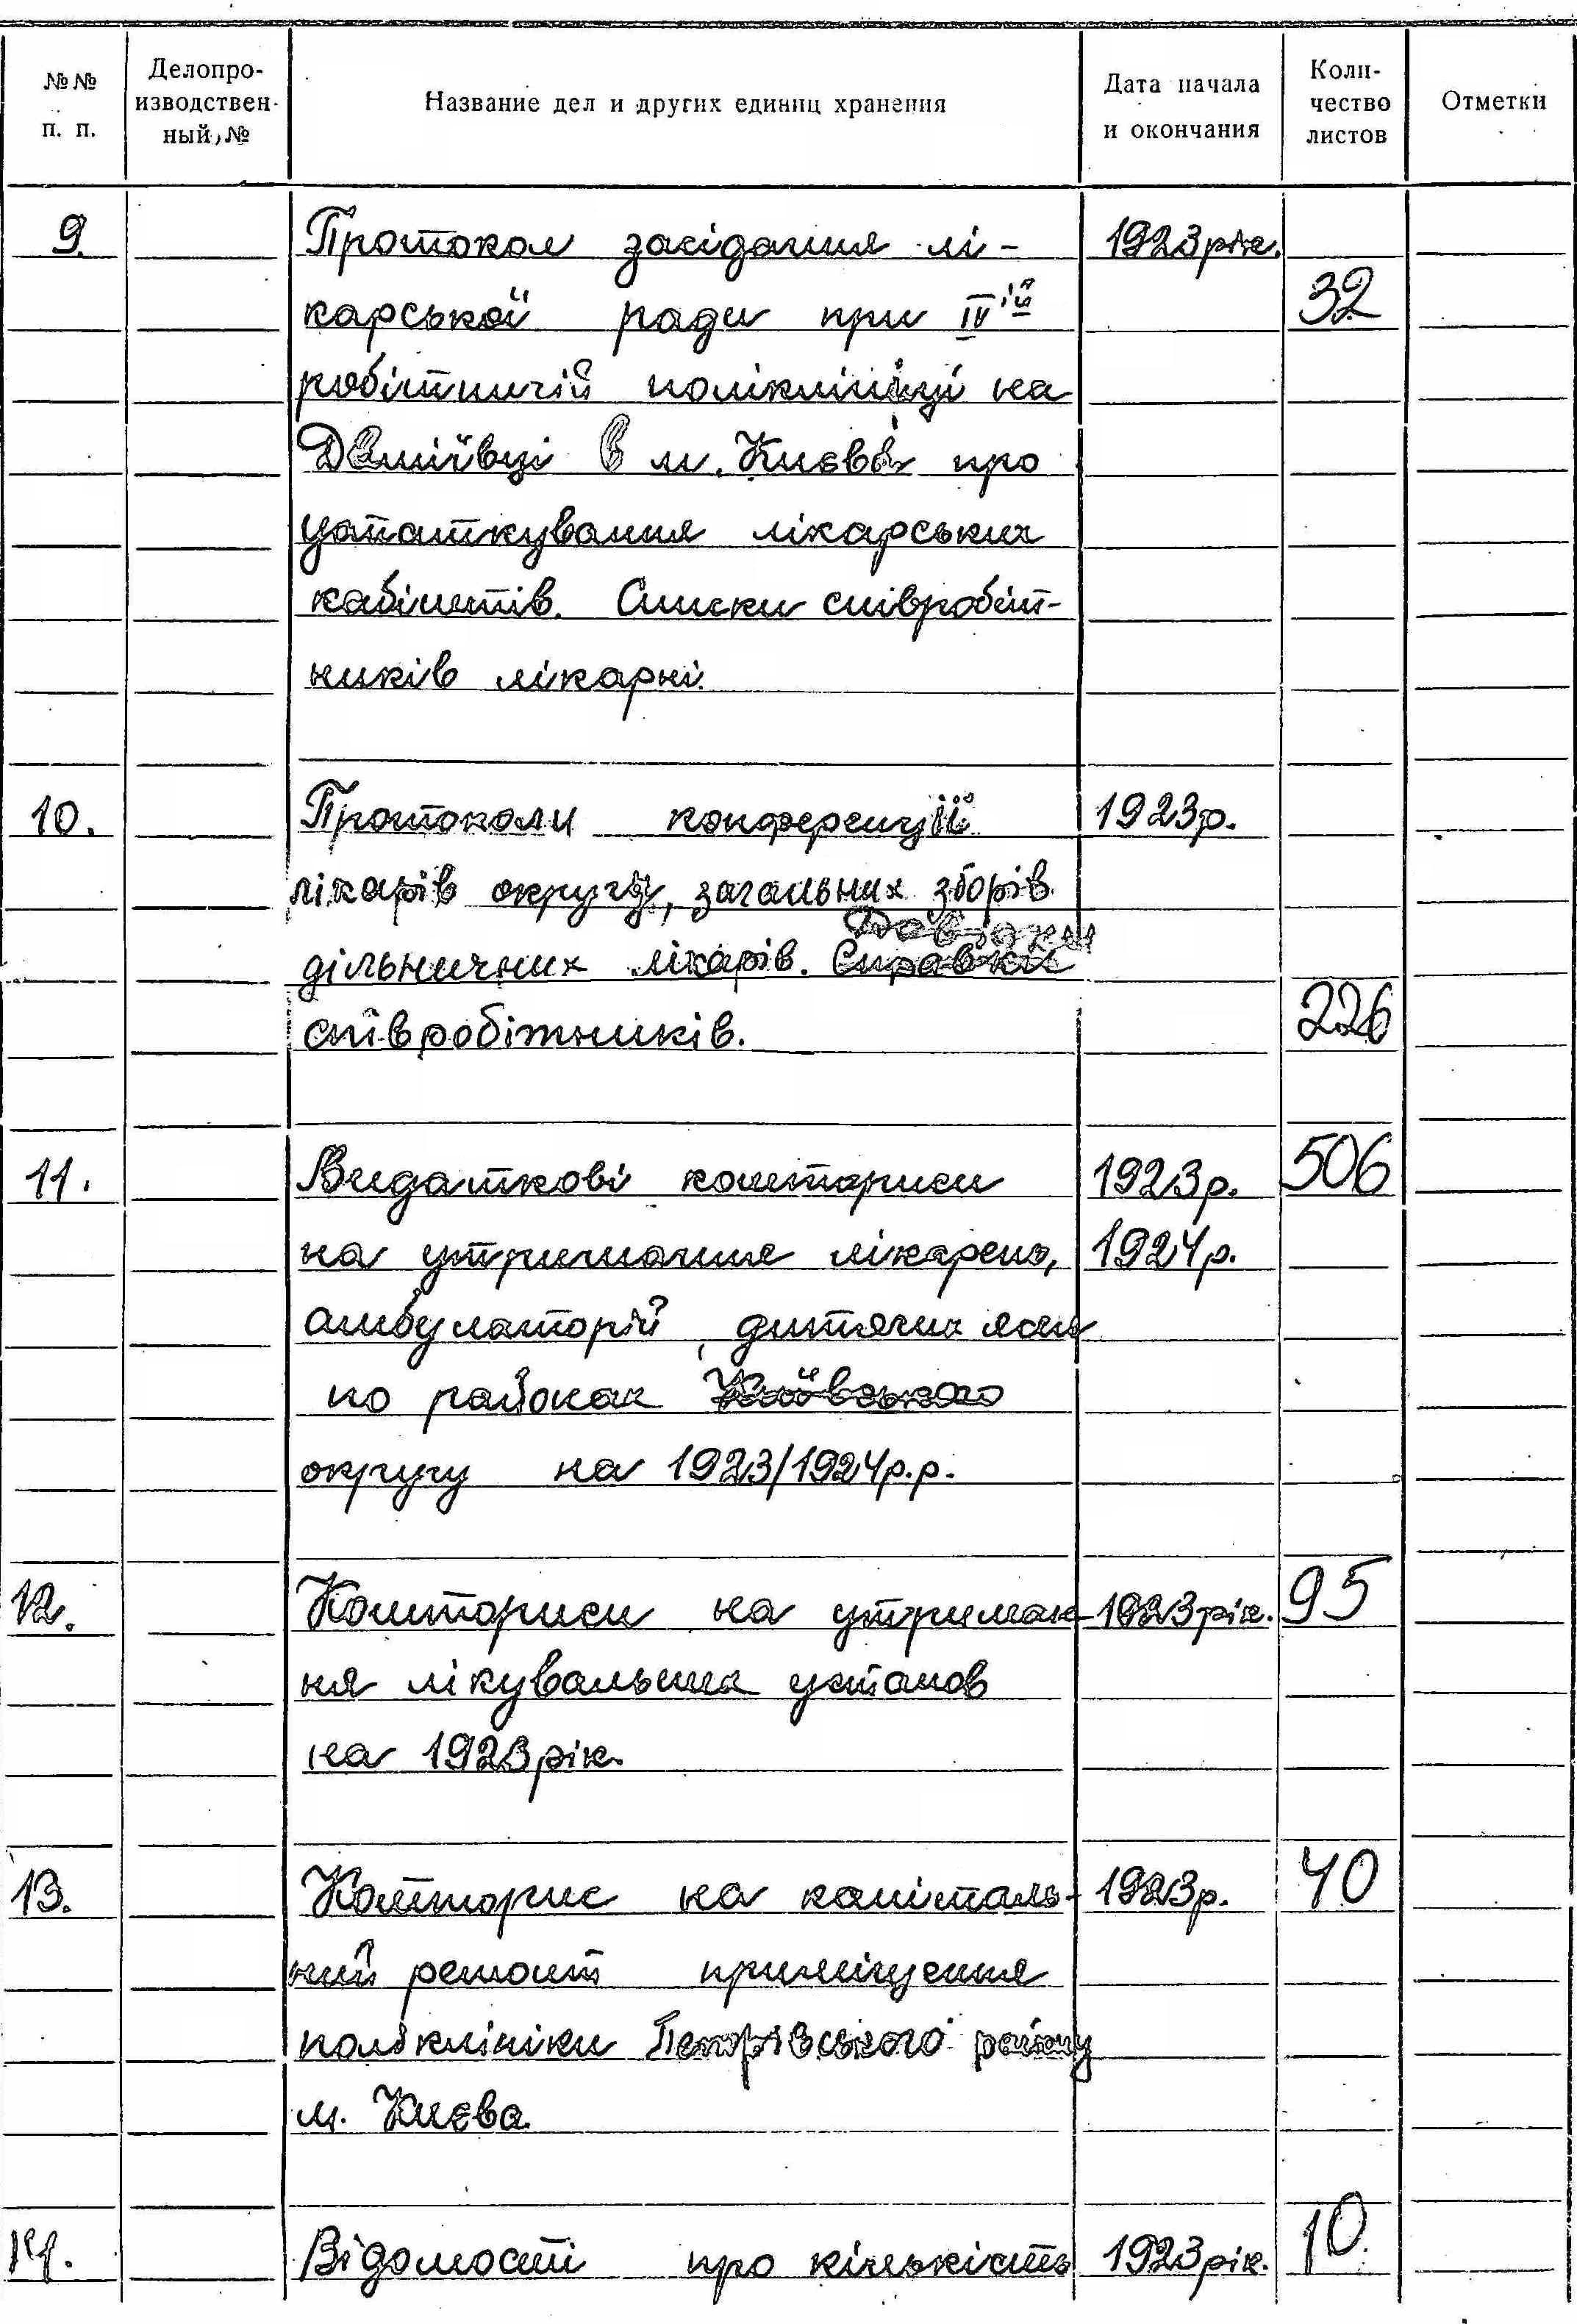 №№ п. п. Делопро-изводствен-ный № Название дел и других единиц хранения Дата начала и окончания Коли-чество листов Отметки
9. Протокол засідання лі- 1923 рік.
карської ради при IV ій 32
робітничій поліклініці на
Деміївці в м. Києві про
устаткування лікарських
кабінетів. Списки співробіт-
ників лікарні.
10. Протоколи конференції 1923 р.
лікарів округу, загальних зборів
Довідки
дільничних лікарів. Справки
співробітників. 226
11. Видаткові кошториси 1923 р. 506
на утримання лікарень, 1924 р.
амбулаторій, дитячих ясел
по районах Київського
округу на 1923/1924 р.р.
12. Кошториси на утриман- 1923 рік. 95
ня лікувальних установ
на 1923 рік.
13. Кошторис на капіталь- 1923 р. 40
ний ремонт приміщення
поліклініки Петрівського району
м. Києва.
14. Відомості про кількість 1923 рік. 10